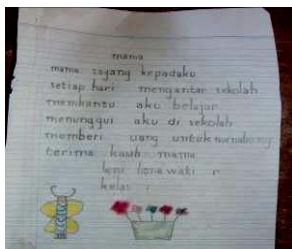 mama
mama sayang kepadaku
setiap hari mengantar sekolah
membantu aku belajar
menunggui aku di sekolah
memberi uang untuk menabung
terima kasih mama
kelas